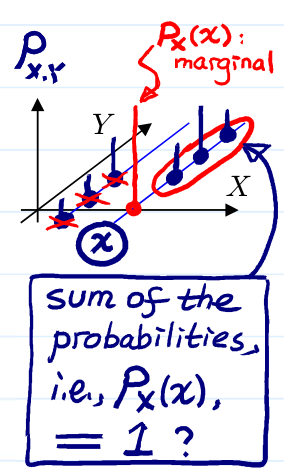 P_{X,Y}
P_X(x):
marginal
Y
X
x
sum of the
probabilities,
i.e., P_X(x),
= 1 ?